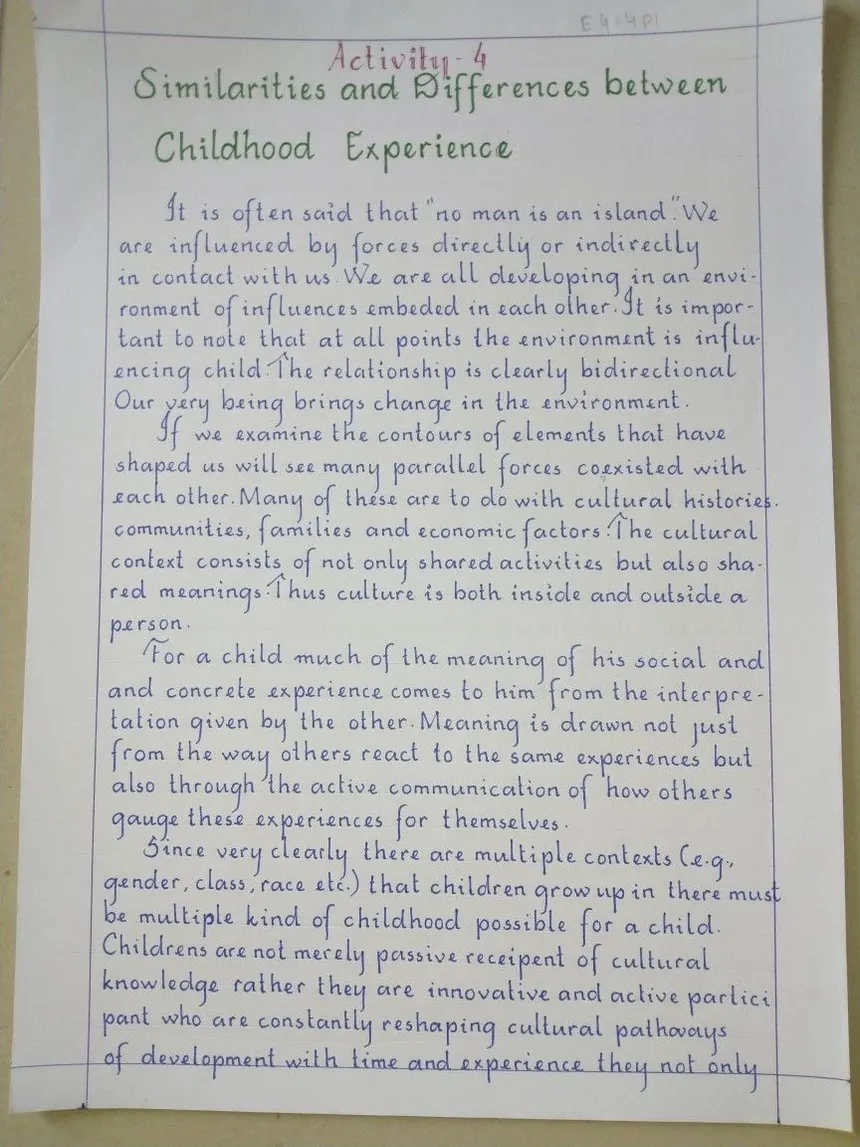 E4-4P1
Activity - 4
Similarities and Differences between
Childhood Experience
It is often said that "no man is an island". We
are influenced by forces directly or indirectly
in contact with us. We are all developing in an envi-
ronment of influences embeded in each other. It is impor-
tant to note that at all points the environment is influ-
encing child. The relationship is clearly bidirectional
Our very being brings change in the environment.
If we examine the contours of elements that have
shaped us will see many parallel forces coexisted with
each other. Many of these are to do with cultural histories.
communities, families and economic factors. The cultural
context consists of not only shared activities but also sha-
red meanings. Thus culture is both inside and outside a
person.
For a child much of the meaning of his social and
and concrete experience comes to him from the interpre-
tation given by the other. Meaning is drawn not just
from the way others react to the same experiences but
also through the active communication of how others
gauge these experiences for themselves.
Since very clearly there are multiple contexts (e.g.,
gender, class, race etc.) that children grow up in there must
be multiple kind of childhood possible for a child.
Childrens are not merely passive receipent of cultural
knowledge rather they are innovative and active partici
pant who are constantly reshaping cultural pathways
of development with time and experience they not only